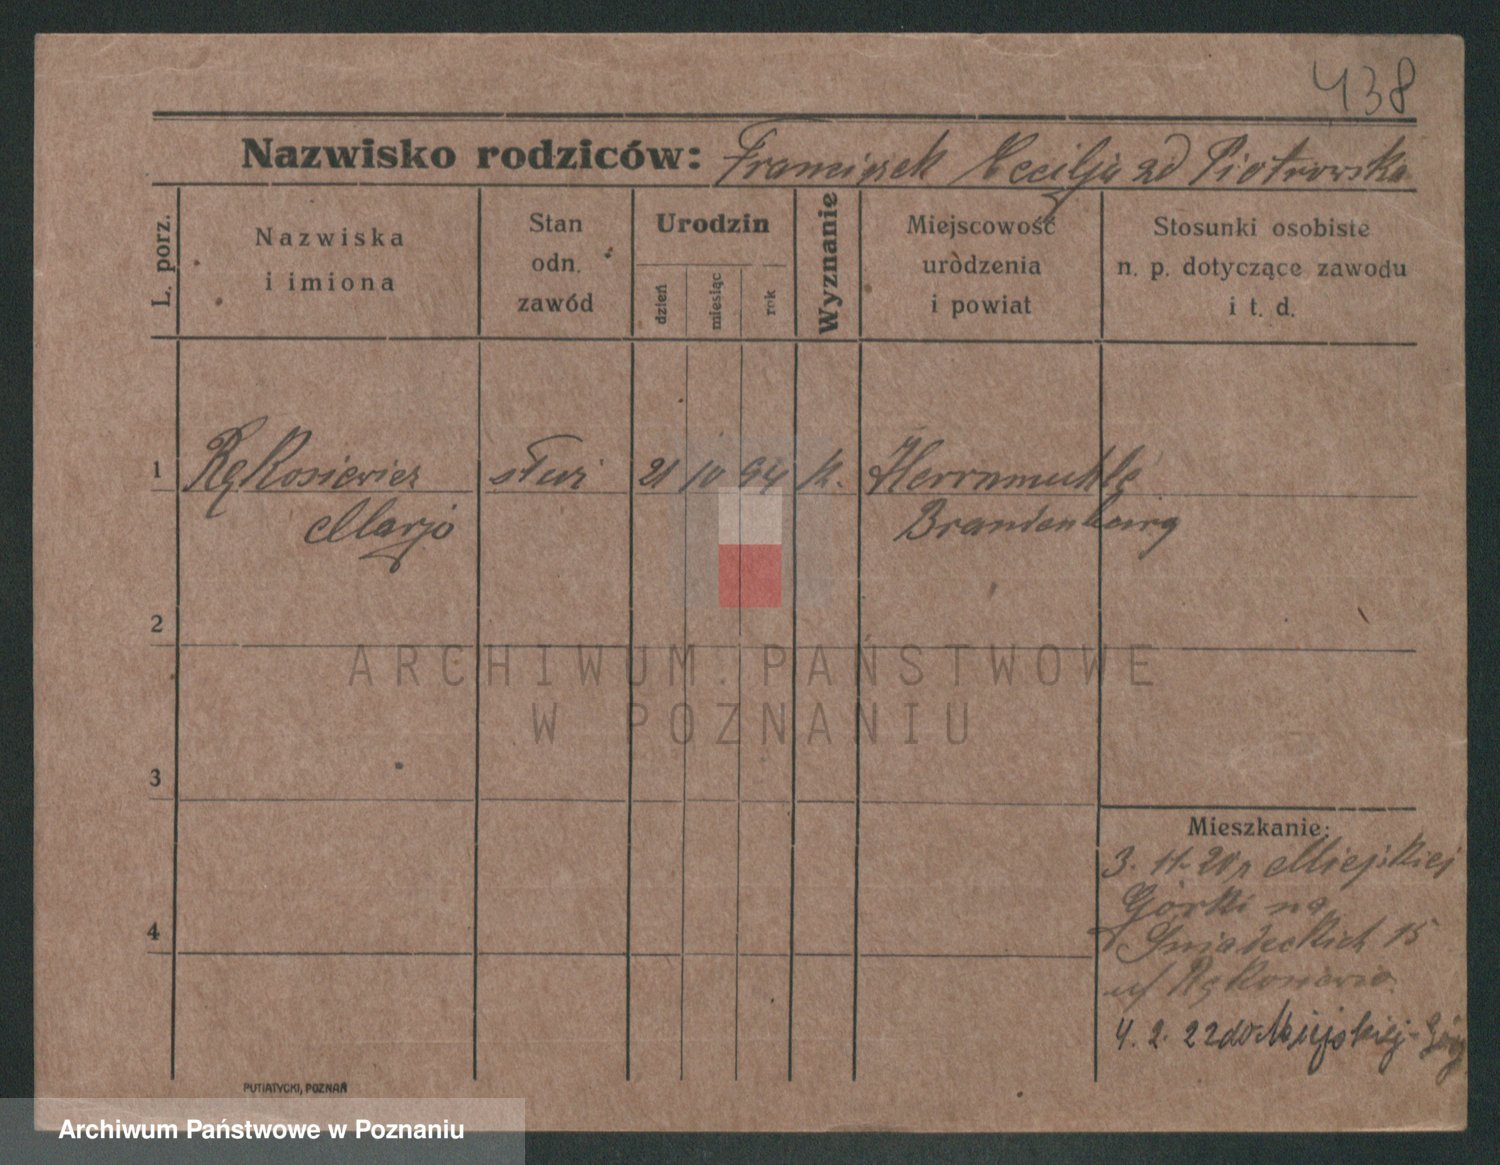 438
Nazwisko rodziców: Franciszek Cecilja zd Piotrowska
L. porz.
Nazwiska
i imiona
Stan
odn.
zawód
Urodzin
dzień
miesiąc
rok
Wyznanie
Miejscowość
urodzenia
i powiat
Stosunki osobiste
n. p. dotyczące zawodu
i t. d.
1 Rękosiewicz 21 10 94 k.
Marja Brandenburg
2
ARCHIWUM PAŃSTWOWE
W POZNANIU
3
Mieszkanie:
3. 11. 20 z Miejskiej
Górki na
4 Śniadeckich 15
4. 2. 22 do Miejskiej-
PUTIATYCKI, POZNAŃ
Archiwum Państwowe w Poznaniu